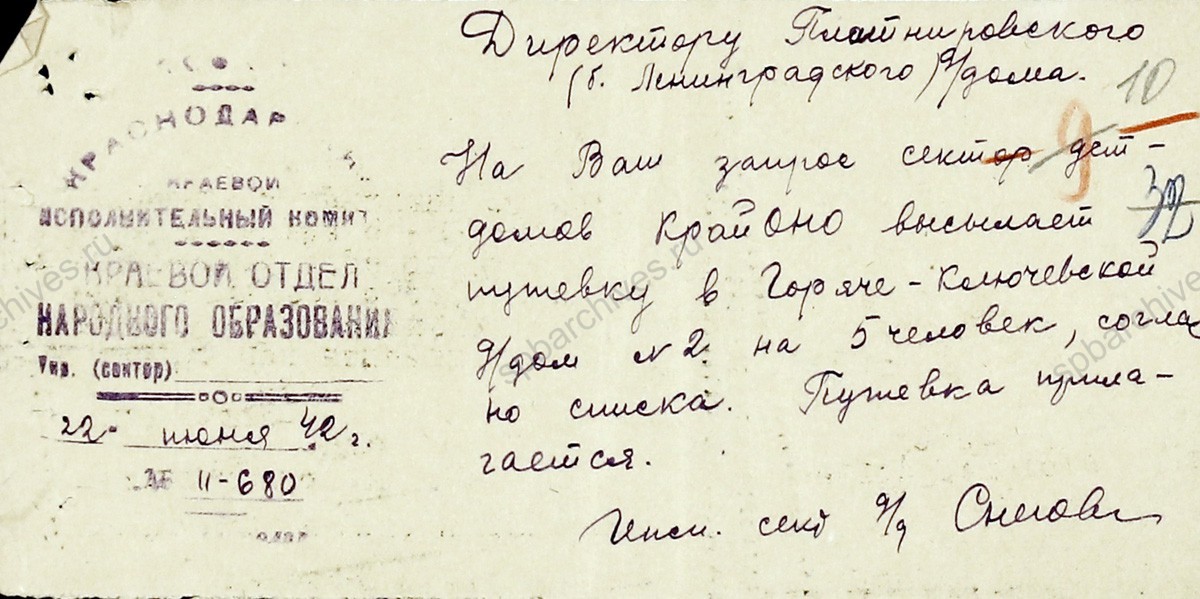 КРАСНОДАР
КРАЕВОЙ
ИСПОЛНИТЕЛЬНЫЙ КОМИТ
КРАЕВОЙ ОТДЕЛ
НАРОДНОГО ОБРАЗОВАНИЯ
Упр. (сектор)
22 июня 42 г.
№ 11-680
Директору Платнировского
(б. Ленинградского) д/дома.
10
9
32
На Ваш запрос сектор дет-
домов КрайОНО высылает
путевку в Горяче-Ключевской
д/дом №2 на 5 человек, соглас
но списка. Путевка прила-
гается.
Инсп. сект д/д
spbarchives.ru